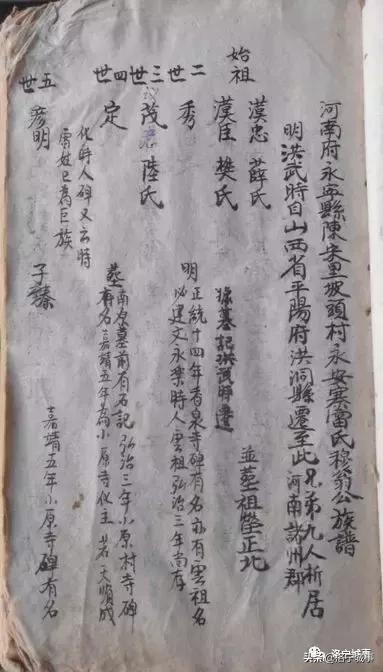 河南府永寧縣陳宋里坡頭村永安寨雷氏穆翁公族譜
明洪武時自山西省平陽府洪洞縣遷至此兄弟九人析居
河南諸州郡
始祖
漠忠 薛氏
漠臣 樊氏
據墓記洪武時遷
並葬祖塋正北
二世
秀
明正統十四年香泉寺碑有名亦有雲祖名
必建文永樂時人雲祖弘治三年尚存
三世
茂 陸氏
四世
定
墓南原墓前有石記弘治三年小原村寺碑
有名嘉靖五年為小原寺化主若天順成
化時人碑又云時
雷姓已為巨族
五世
彦明
子臻
嘉靖五年小原寺碑有名
头条@洛宁城事
洛宁城事